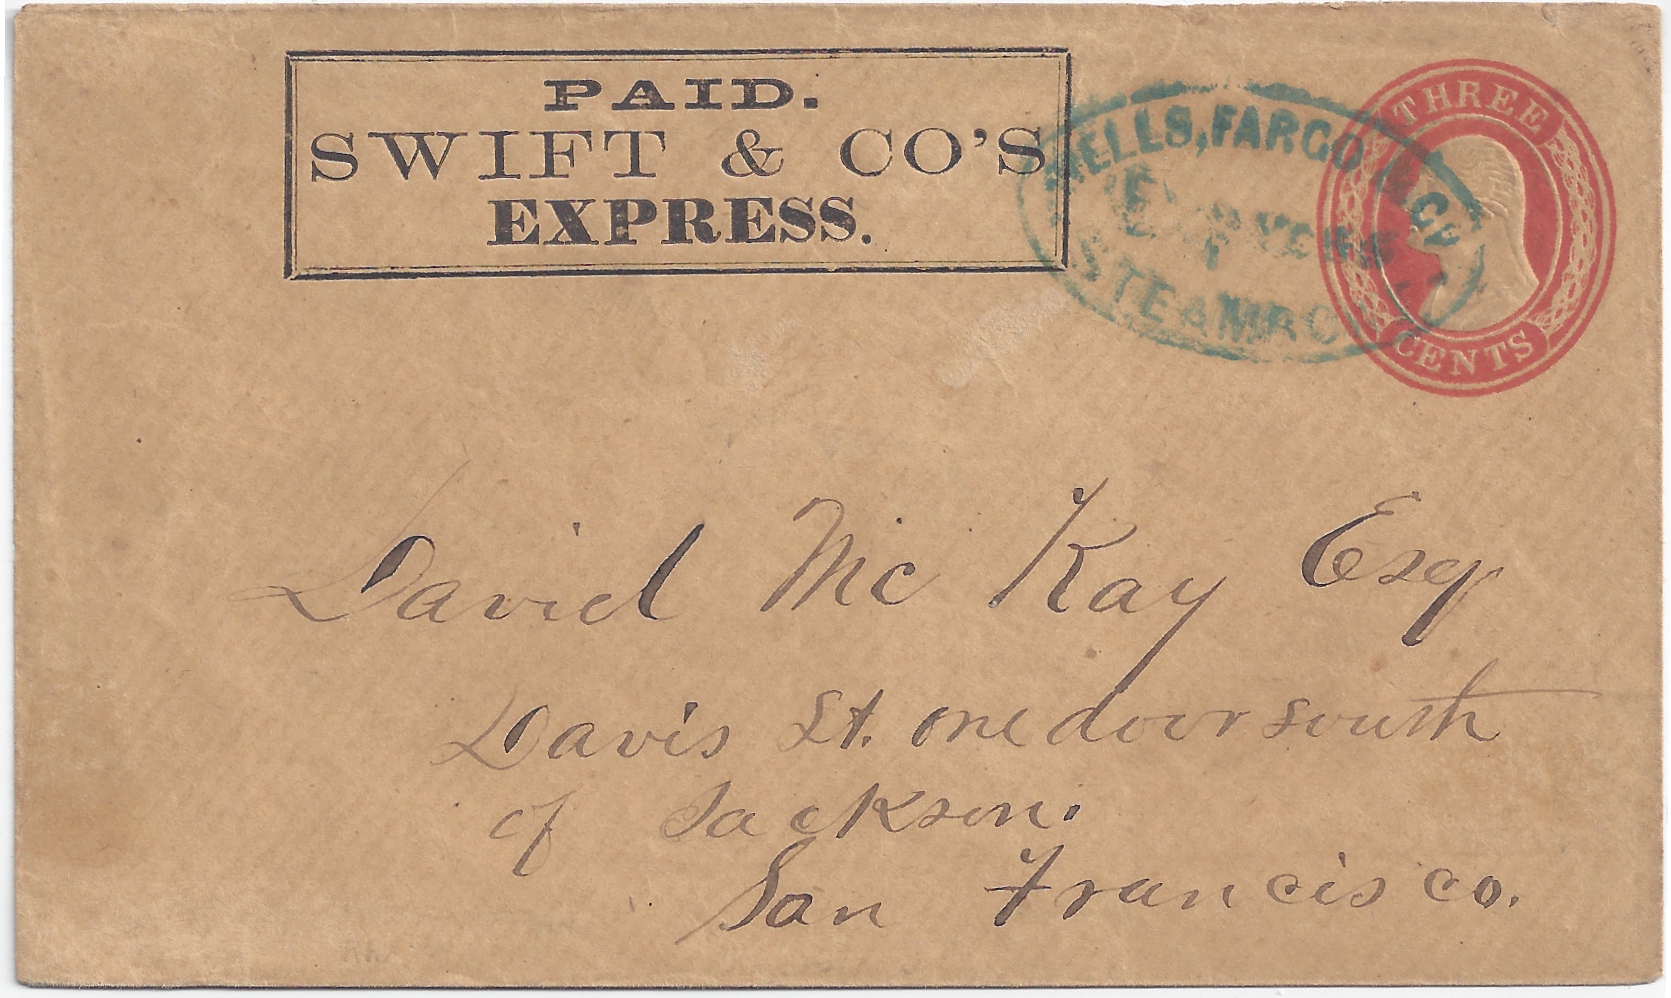 PAID.
SWIFT & CO'S
EXPRESS.
WELLS, FARGO & CO
EXPRESS
STEAMBO
THREE
CENTS
David McKay Esq
Davis St. one door south
of Jackson.
San Francisco.